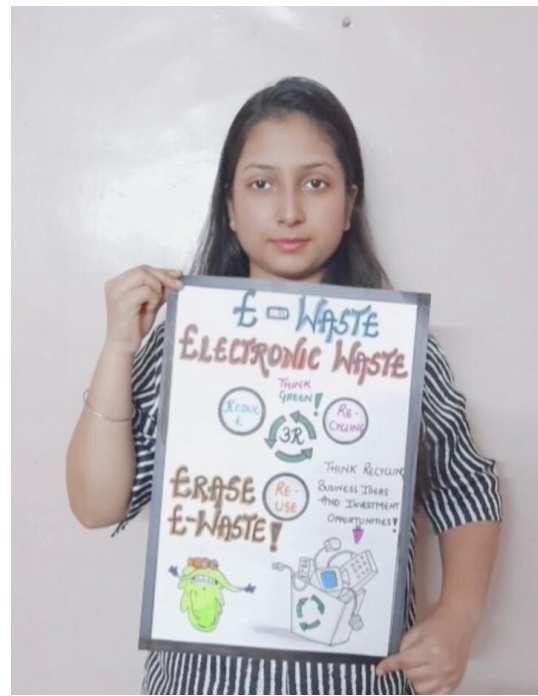 E-WASTE
ELECTRONIC WASTE
THINK
GREEN!
REDUC
E
3R
RE-
CYCLING
ERASE
E-WASTE!
RE-
USE
THINK RECYCLING
BUSINESS IDEAS
AND INVESTMENT
OPPORTUNITIES!